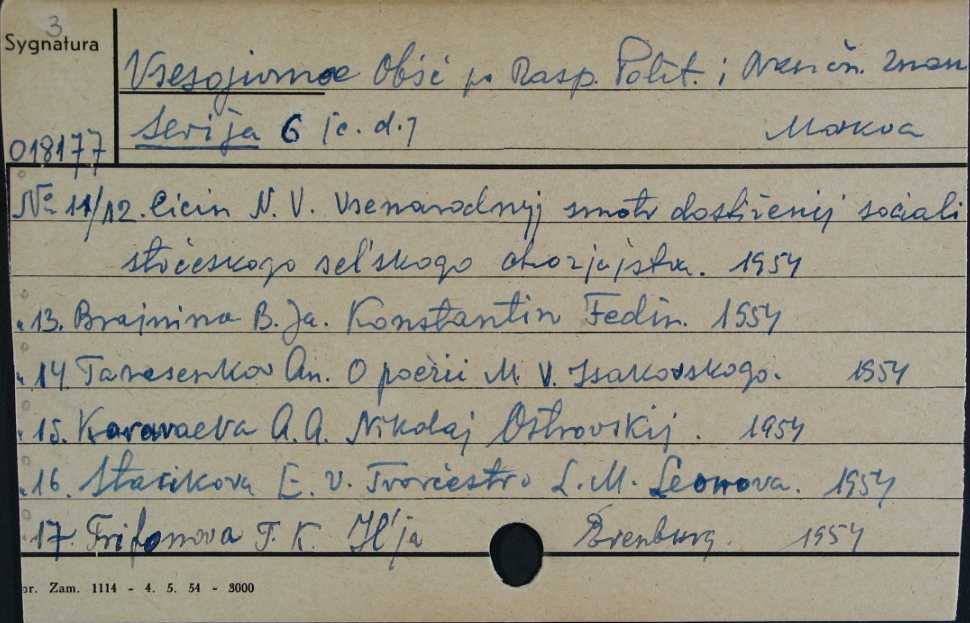 3
Sygnatura
Vsesojuznoe Obšč po Rasp. Polit. i Znan
Serija 6 [c. d.] Moskva
018177
№ 11/12. Cicin N. V. Vsenarodnyj smotr dostiženij sociali
stičeskogo sel'skogo chozjajstva. 1954
" 13. Brajnina B. Ja. Konstantin Fedin. 1954
" 14. Tarasenkov An. O poèzii M. V. Isakovskogo. 1954
" 15. Karavaeva A. A. Nikolaj Ostrovskij. 1954
" 16. Starikova E. V. Tvorčestvo L. M. Leonova. 1954
" 17. Trifonova T. K. Il'ja Èrenburg. 1954
or. Zam. 1114 - 4. 5. 54 - 3000